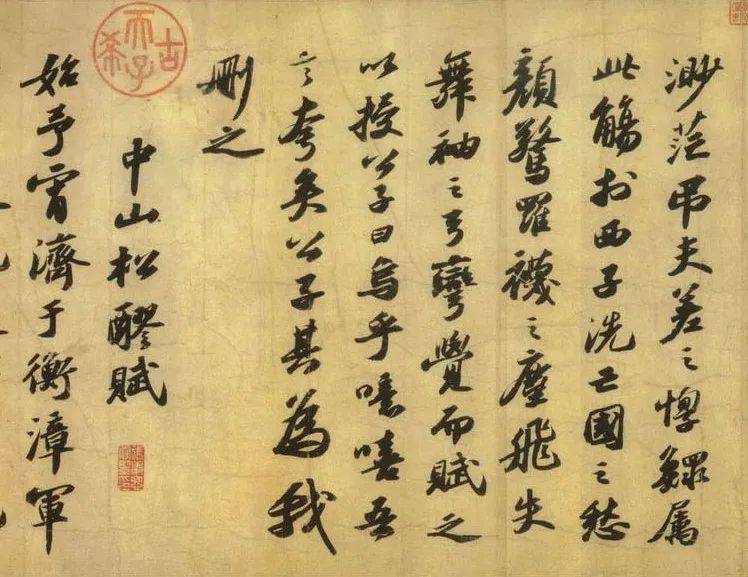 渺茫吊夫差之惸鰥屬
此觴於西子洗亡國之愁
顏驚羅襪之塵飛失
舞袖之弓彎覺而賦之
以授公子曰烏乎噫嘻吾
言夸矣公子其為我
刪之
古希天子
中山松醪賦
始予宵濟于衡漳軍